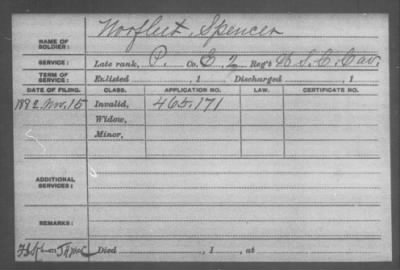 NAME OF SOLDIER: Norfleet, Spencer
SERVICE: Late rank, P. Co. E, 2 Reg't U.S.C. Cav.
TERM OF SERVICE: Enlisted , 1 Discharged , 1
DATE OF FILING. CLASS. APPLICATION NO. LAW. CERTIFICATE NO.
1882 Nov. 15 Invalid, 465.171
Widow,
Minor,
ADDITIONAL SERVICES:
REMARKS:
Died , 1 , at